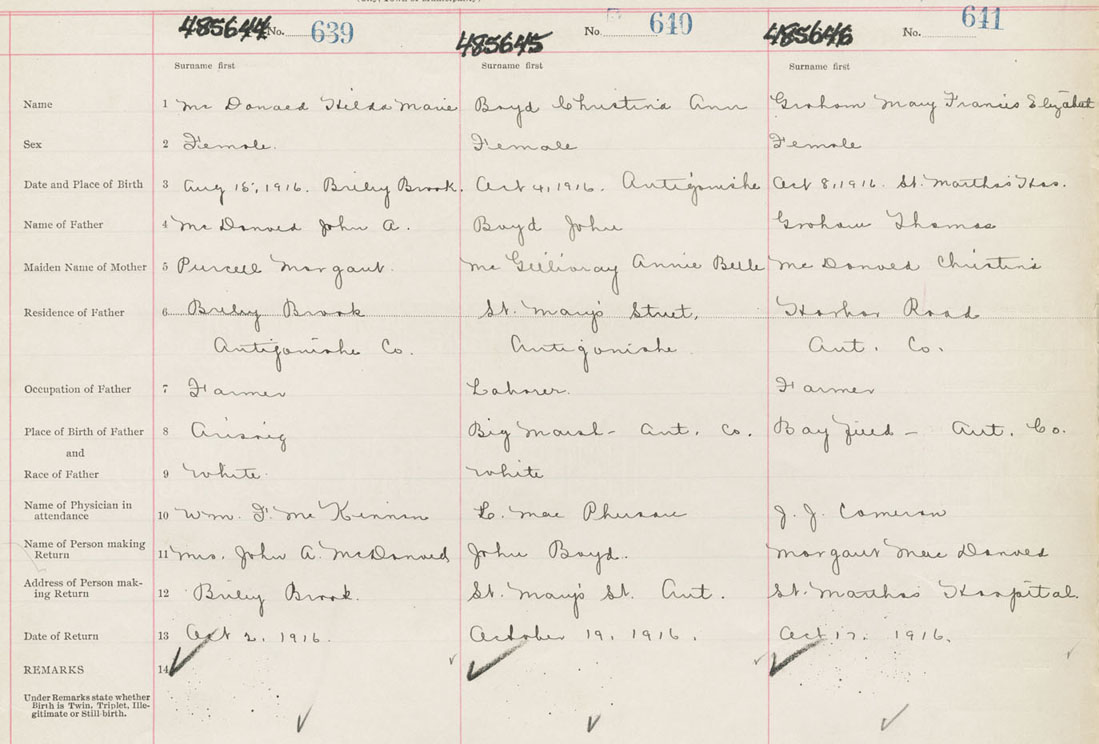 485644 No. 639 485645 No. 640 485646 No. 641
Surname first Surname first Surname first
Name 1 Mc Donald Hilda Marie Boyd Christina Ann Graham Mary Francis Elizabet
Sex 2 Female. Female Female
Date and Place of Birth 3 Aug 15, 1916. Briley Brook. Oct 4, 1916. Antigonishe Oct 8, 1916. St. Martha's Hos.
Name of Father 4 Mc Donald John A. Boyd John Graham Thomas
Maiden Name of Mother 5 Purcell Margaret. Mc Gillivray Annie Belle Mc Donald Christina
Residence of Father 6 Briley Brook St. Mary's Street, Harbor Road
Antigonishe Co. Antigonishe Ant. Co.
Occupation of Father 7 Farmer Laborer. Farmer
Place of Birth of Father 8 Arisaig Big Marsh - Ant. Co. Bayfield - Ant. Co.
and
Race of Father 9 White White
Name of Physician in
attendance 10 Wm. F. McKinnon L. Mac Pherson J. J. Cameron
Name of Person making
Return 11 Mrs. John A. McDonald John Boyd. Margaret Mac Donald
Address of Person mak-
ing Return 12 Briley Brook. St. Mary's St. Ant. St. Marthas Hospital.
Date of Return 13 Oct 2. 1916. October 19, 1916. Oct 17. 1916.
REMARKS 14
Under Remarks state whether
Birth is Twin, Triplet, Ille-
gitimate or Still-birth.